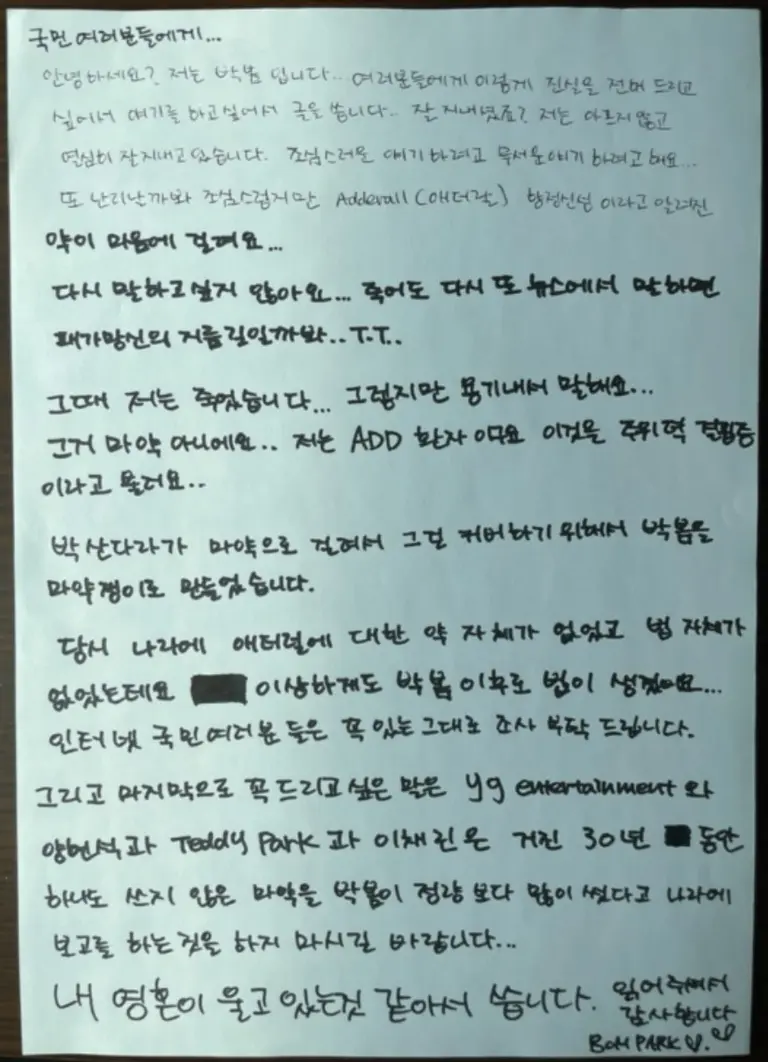 국민 여러분들에게...
안녕하세요? 저는 박봄 입니다... 여러분들에게 이렇게 진실을 전해 드리고
싶어서 얘기를 하고싶어서 글을 씁니다.. 잘 지내셨죠? 저는 아프지않고
열심히 잘지내고 있습니다. 조심스러운 얘기 하려고 무서운얘기 하려고 해요...
또 난리날까봐 조심스럽지만 Adderall (애더랄) 향정신성 이라고 알려진
약이 마음에 걸려요...
다시 말하고싶지 않아요... 죽어도 다시 또 뉴스에서 말하면
패가망신의 지름길일까봐..T.T..
그때 저는 죽었습니다... 그렇지만 용기내서 말해요...
그거 마약 아니에요.. 저는 ADD 환자 이구요 이것을 주위력 결핍증
이라고 불러요..
박산다라가 마약으로 걸려서 그걸 커버하기위해서 박봄을
마약쟁이로 만들었습니다.
당시 나라에 애터럴에 대한 약 자체가 없었고 법 자체가
없었는데요 이상하게도 박봄 이후로 법이 생겼어요...
인터넷 국민여러분 들은 꼭 있는그대로 조사 부탁 드립니다.
그리고 마지막으로 꼭드리고싶은 말은 yg entertainment 와
양현석과 Teddy Park 과 이채린은 거진 30년 동안
하나도 쓰지 않은 마약을 박봄이 정량 보다 많이 썼다고 나라에
보고를 하는것을 하지 마시길 바랍니다...
내 영혼이 울고 있는것 같아서 씁니다. 읽어주셔서
감사합니다
BOM PARK ♡. ♡